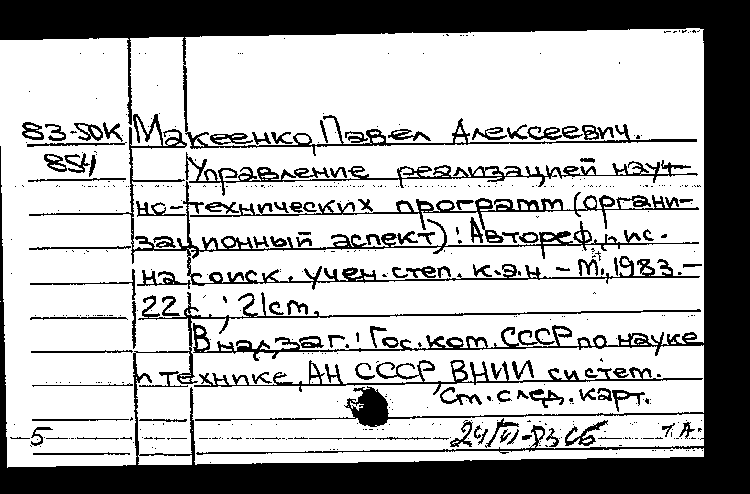 83-50К Макеенко, Павел Алексеевич.
854 Управление реализацией науч-
но-технических программ (органи-
зационный аспект): Автореф. дис.
на соиск. учен. степ. к.э.н. - М., 1983. -
22 с.; 21см.
В надзаг.: Гос. ком. СССР по науке
и технике, АН СССР, ВНИИ систем.
См. след. карт.
5 24/VI-83 СБ Т.А.